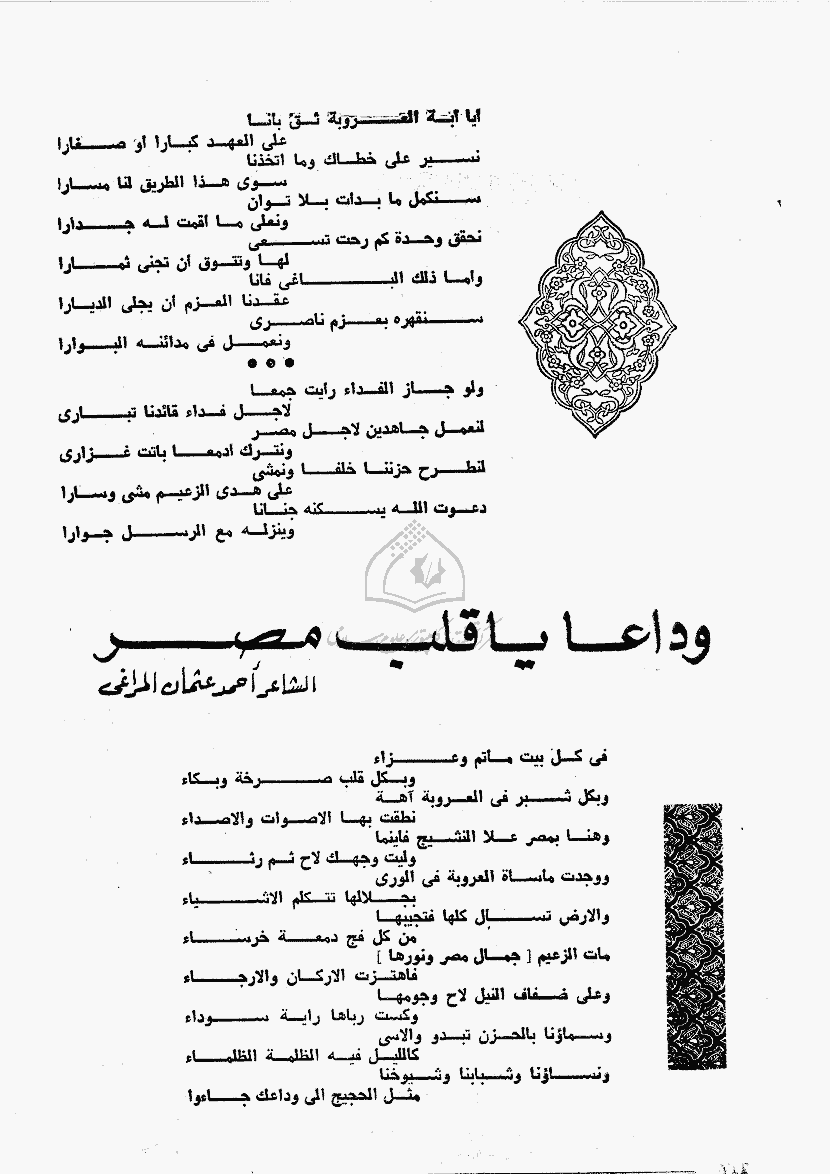 ايا ابنة العروبة ثق بانا
على العهد كبارا او صغارا
نسير على خطاك وما اتخذنا
سوى هذا الطريق لنا مسارا
سنكمل ما بدات بلا توان
ونعلى ما اقمت له جدارا
نحقق وحدة كم رحت تسعى
لها وتتوق ان تجنى ثمارا
واما ذلك الباغى فانا
عقدنا العزم ان يجلى الديارا
سنقهره بعزم ناصرى
ونعمل فى مدائنه البوارا
● ● ●
ولو جاز الفداء رايت جمعا
لاجل فداء قائدنا تبارى
لنعمل جاهدين لاجل مصر
ونترك ادمعا باتت غزارى
لنطرح حزننا خلفا ونمشى
على هدى الزعيم مشى وسارا
دعوت الله يسكنه جنانا
وينزله مع الرسل جوارا
وداعا يا قلب مصر
الشاعر أحمد عثمان المراغى
فى كل بيت ماتم وعزاء
وبكل قلب صرخة وبكاء
وبكل شبر فى العروبة آهة
نطقت بها الاصوات والاصداء
وهنا بمصر علا النشيج فاينما
وليت وجهك لاح ثم رثاء
ووجدت ماساة العروبة فى الورى
بجلالها تتكلم الاشياء
والارض تسال كلها فتجيبها
من كل فج دمعة خرساء
مات الزعيم [ جمال مصر ونورها ]
فاهتزت الاركان والارجاء
وعلى ضفاف النيل لاح وجومها
وكست رباها راية سوداء
وسماؤنا بالحزن تبدو والاسى
كالليل فيه الظلمة الظلماء
ونساؤنا وشبابنا وشيوخنا
مثل الحجيج الى وداعك جاءوا